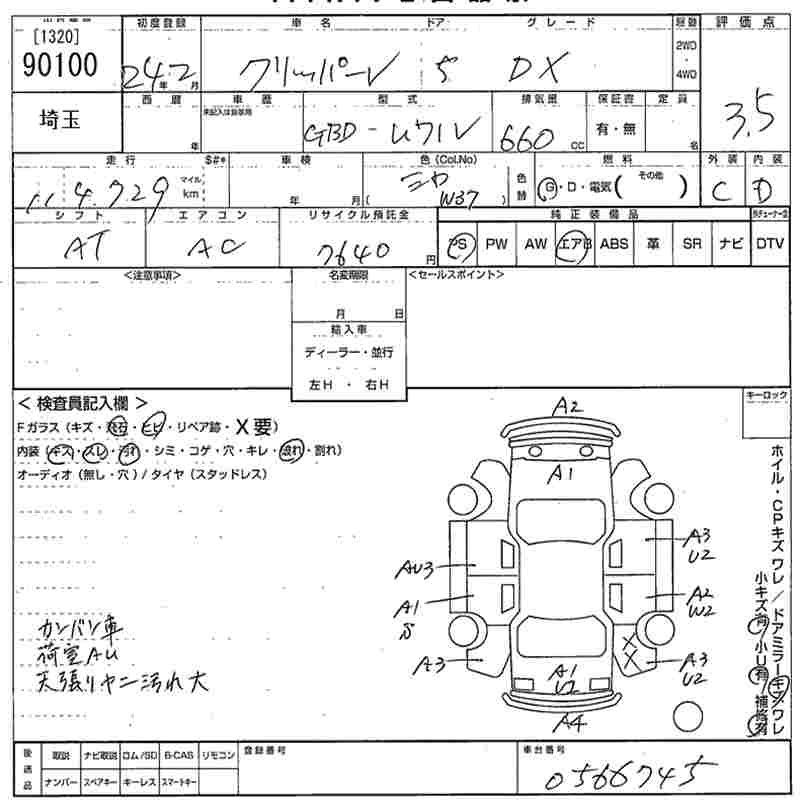 [1320]
90100
初度登録 車名 ドア グレード 駆動 評価点
24年2月 クリッパーV 5 DX 2WD・4WD 3.5
埼玉
西暦 車歴 型式 排気量 保証書 定員
年 未記入は自家用 GBD-U71V 660cc 有・無 名
走行 S#* 車検 色(Col.No) 燃料 外装 内装
114,729 マイル km 年 月 ( W37 ) 色替 G・D・電気( その他 ) C D
シフト エアコン リサイクル預託金 純正装備品
AT AC 7640円 PS PW AW エアB ABS 革 SR ナビ DTV
<注意事項> 名変期限 <セールスポイント>
月 日
輸入車
ディーラー・並行
左H・右H
キーロック
<検査員記入欄>
Fガラス(キズ・飛石・ヒビ・リペア跡・X要)
内装(キズ・スレ・汚れ・シミ・コゲ・穴・キレ・破れ・割れ)
オーディオ(無し・穴)/タイヤ(スタッドレス)
カンバン車
荷室AU
天張りヤニ汚れ大
A2
A1
A3
U2
AU3
A2
W2
A1
S
A3
X
X
A3
U2
A1
U2
A4
ホイル・CPキズワレ/ドアミラーキズワレ
小キズ有 小U有 補修有
後送品 取説 ナビ取説 ロム/SD B-CAS リモコン 登録番号 車台番号
ナンバー スペアキー キーレス スマートキー 0566745